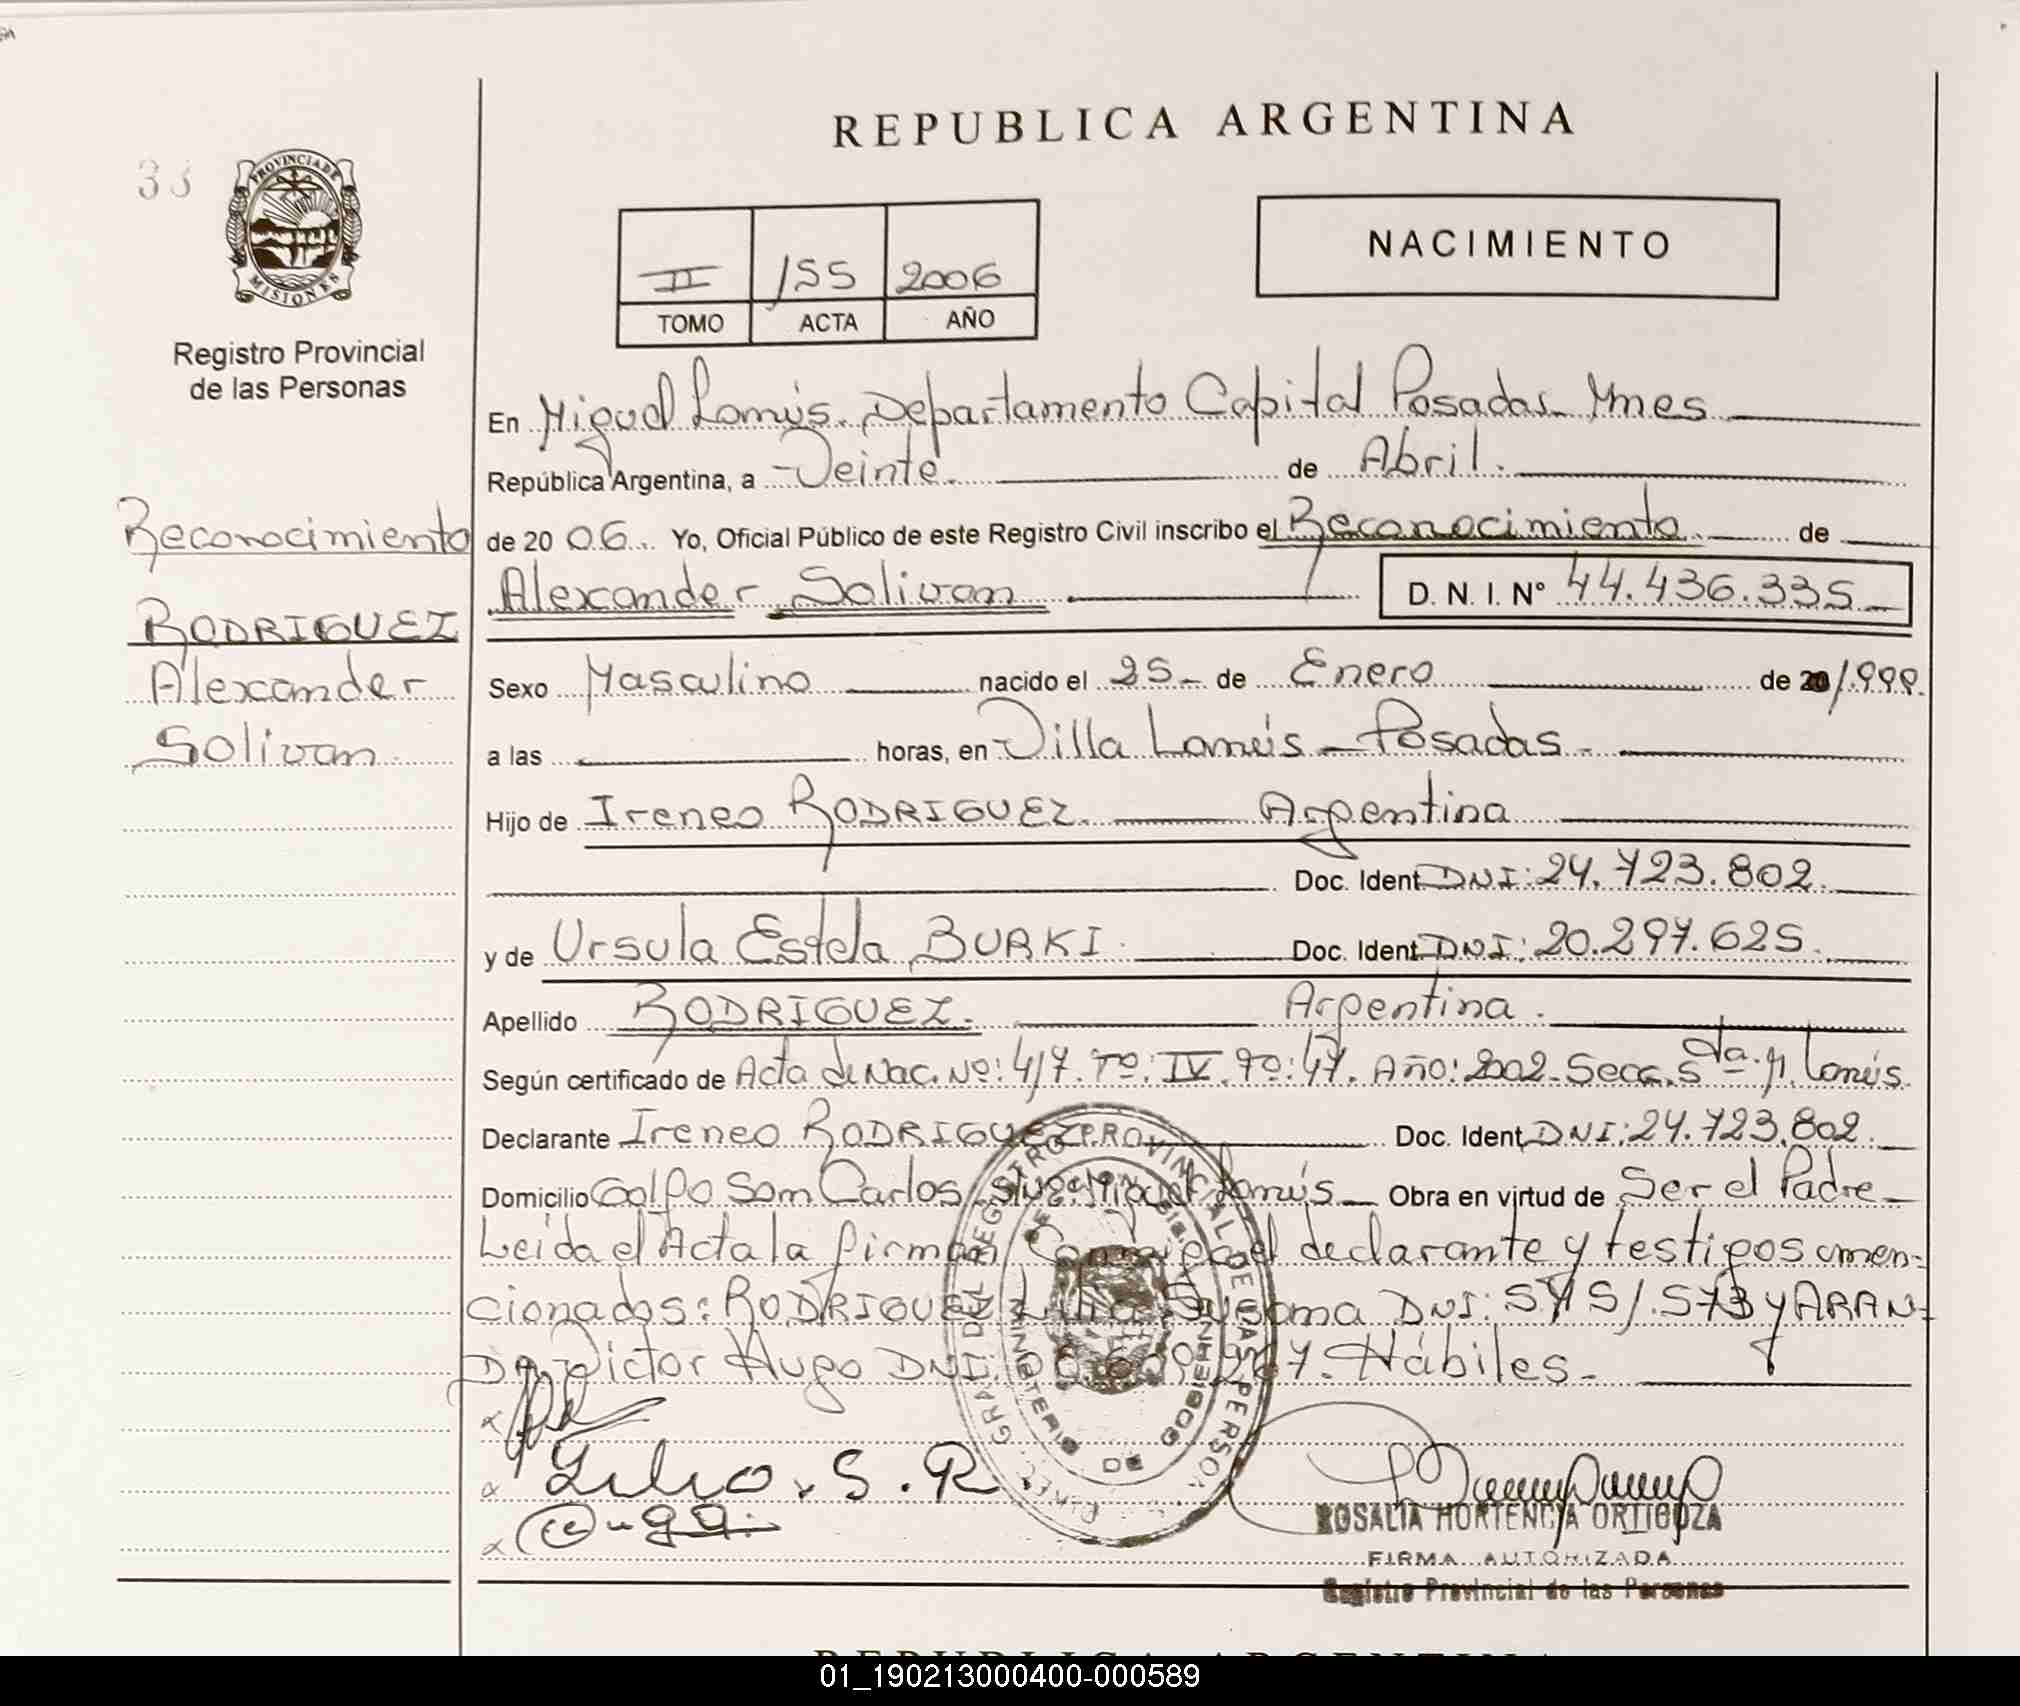 33
PROVINCIA DE
MISIONES
Registro Provincial
de las Personas
Reconocimiento
RODRIGUEZ
Alexander
Solivan
REPUBLICA ARGENTINA
NACIMIENTO
II 155 2006
TOMO ACTA AÑO
En Miguel Lanús. Departamento Capital Posadas Mnes
República Argentina, a Veinte. de Abril.
de 20 06. Yo, Oficial Público de este Registro Civil inscribo el Reconocimiento de
Alexander Solivan D. N. I. Nº 44.436.335
Sexo Masculino nacido el 25 de Enero de 20 1.999.
a las horas, en Villa Lanús - Posadas.
Hijo de Ireneo RODRIGUEZ. Argentina
Doc. Ident DNI: 24.723.802.
y de Ursula Estela BURKI. Doc. Ident DNI: 20.297.625.
Apellido RODRIGUEZ. Argentina.
Según certificado de Acta de Nac. Nº: 417. Tº: IV. Fº: 47. Año: 2002. Secc. 5ta. M. Lanús.
Declarante Ireneo RODRIGUEZ Doc. Ident. DNI: 24.723.802.
Domicilio Galpo San Carlos Miguel Lanús Obra en virtud de Ser el Padre
Leida el Acta la firman Conmigo el declarante y testigos amen-
cionados: RODRIGUEZ Susana DNI: y ARAN-
DA Victor Hugo DNI: Hábiles.
DEL REGISTRO PROVINCIAL DE LAS PERSONAS
MINISTERIO DE GOBIERNO
Lilia. S. R.
ROSALIA HORTENCIA ORTIGOZA
FIRMA AUTORIZADA
Registro Provincial de las Personas
REPUBLICA ARGENTINA
01_190213000400-000589